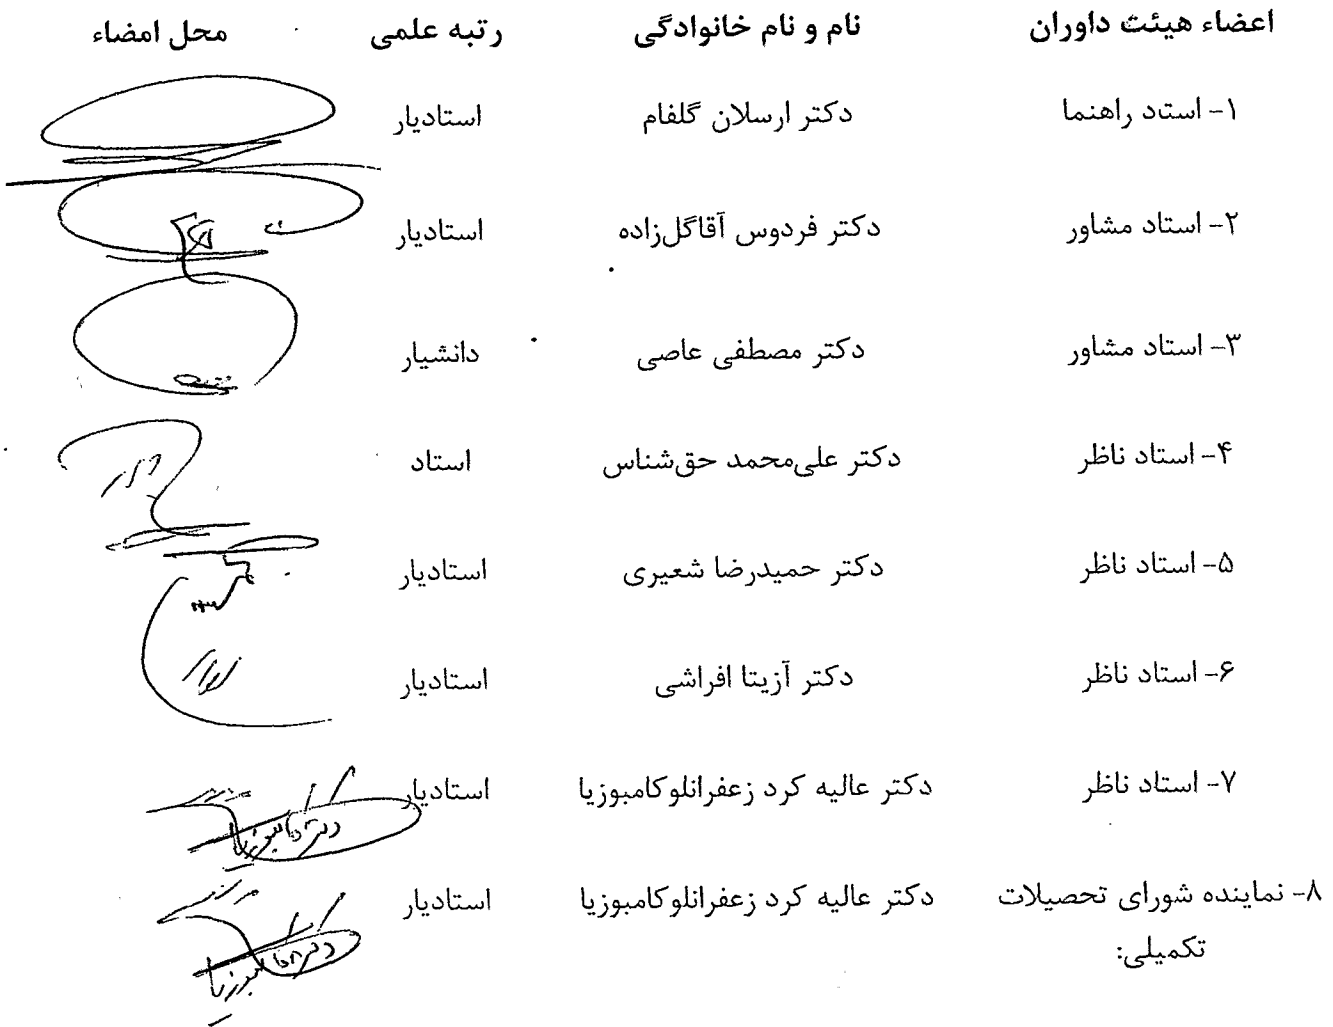 اعضاء هیئت داوران نام و نام خانوادگی رتبه علمی محل امضاء
۱- استاد راهنما دکتر ارسلان گلفام استادیار
۲- استاد مشاور دکتر فردوس آقاگل‌زاده استادیار
۳- استاد مشاور دکتر مصطفی عاصی دانشیار
۴- استاد ناظر دکتر علی‌محمد حق‌شناس استاد
۵- استاد ناظر دکتر حمیدرضا شعیری استادیار
۶- استاد ناظر دکتر آزیتا افراشی استادیار
۷- استاد ناظر دکتر عالیه کرد زعفرانلو کامبوزیا استادیار
۸- نماینده شورای تحصیلات دکتر عالیه کرد زعفرانلو کامبوزیا استادیار
تکمیلی: